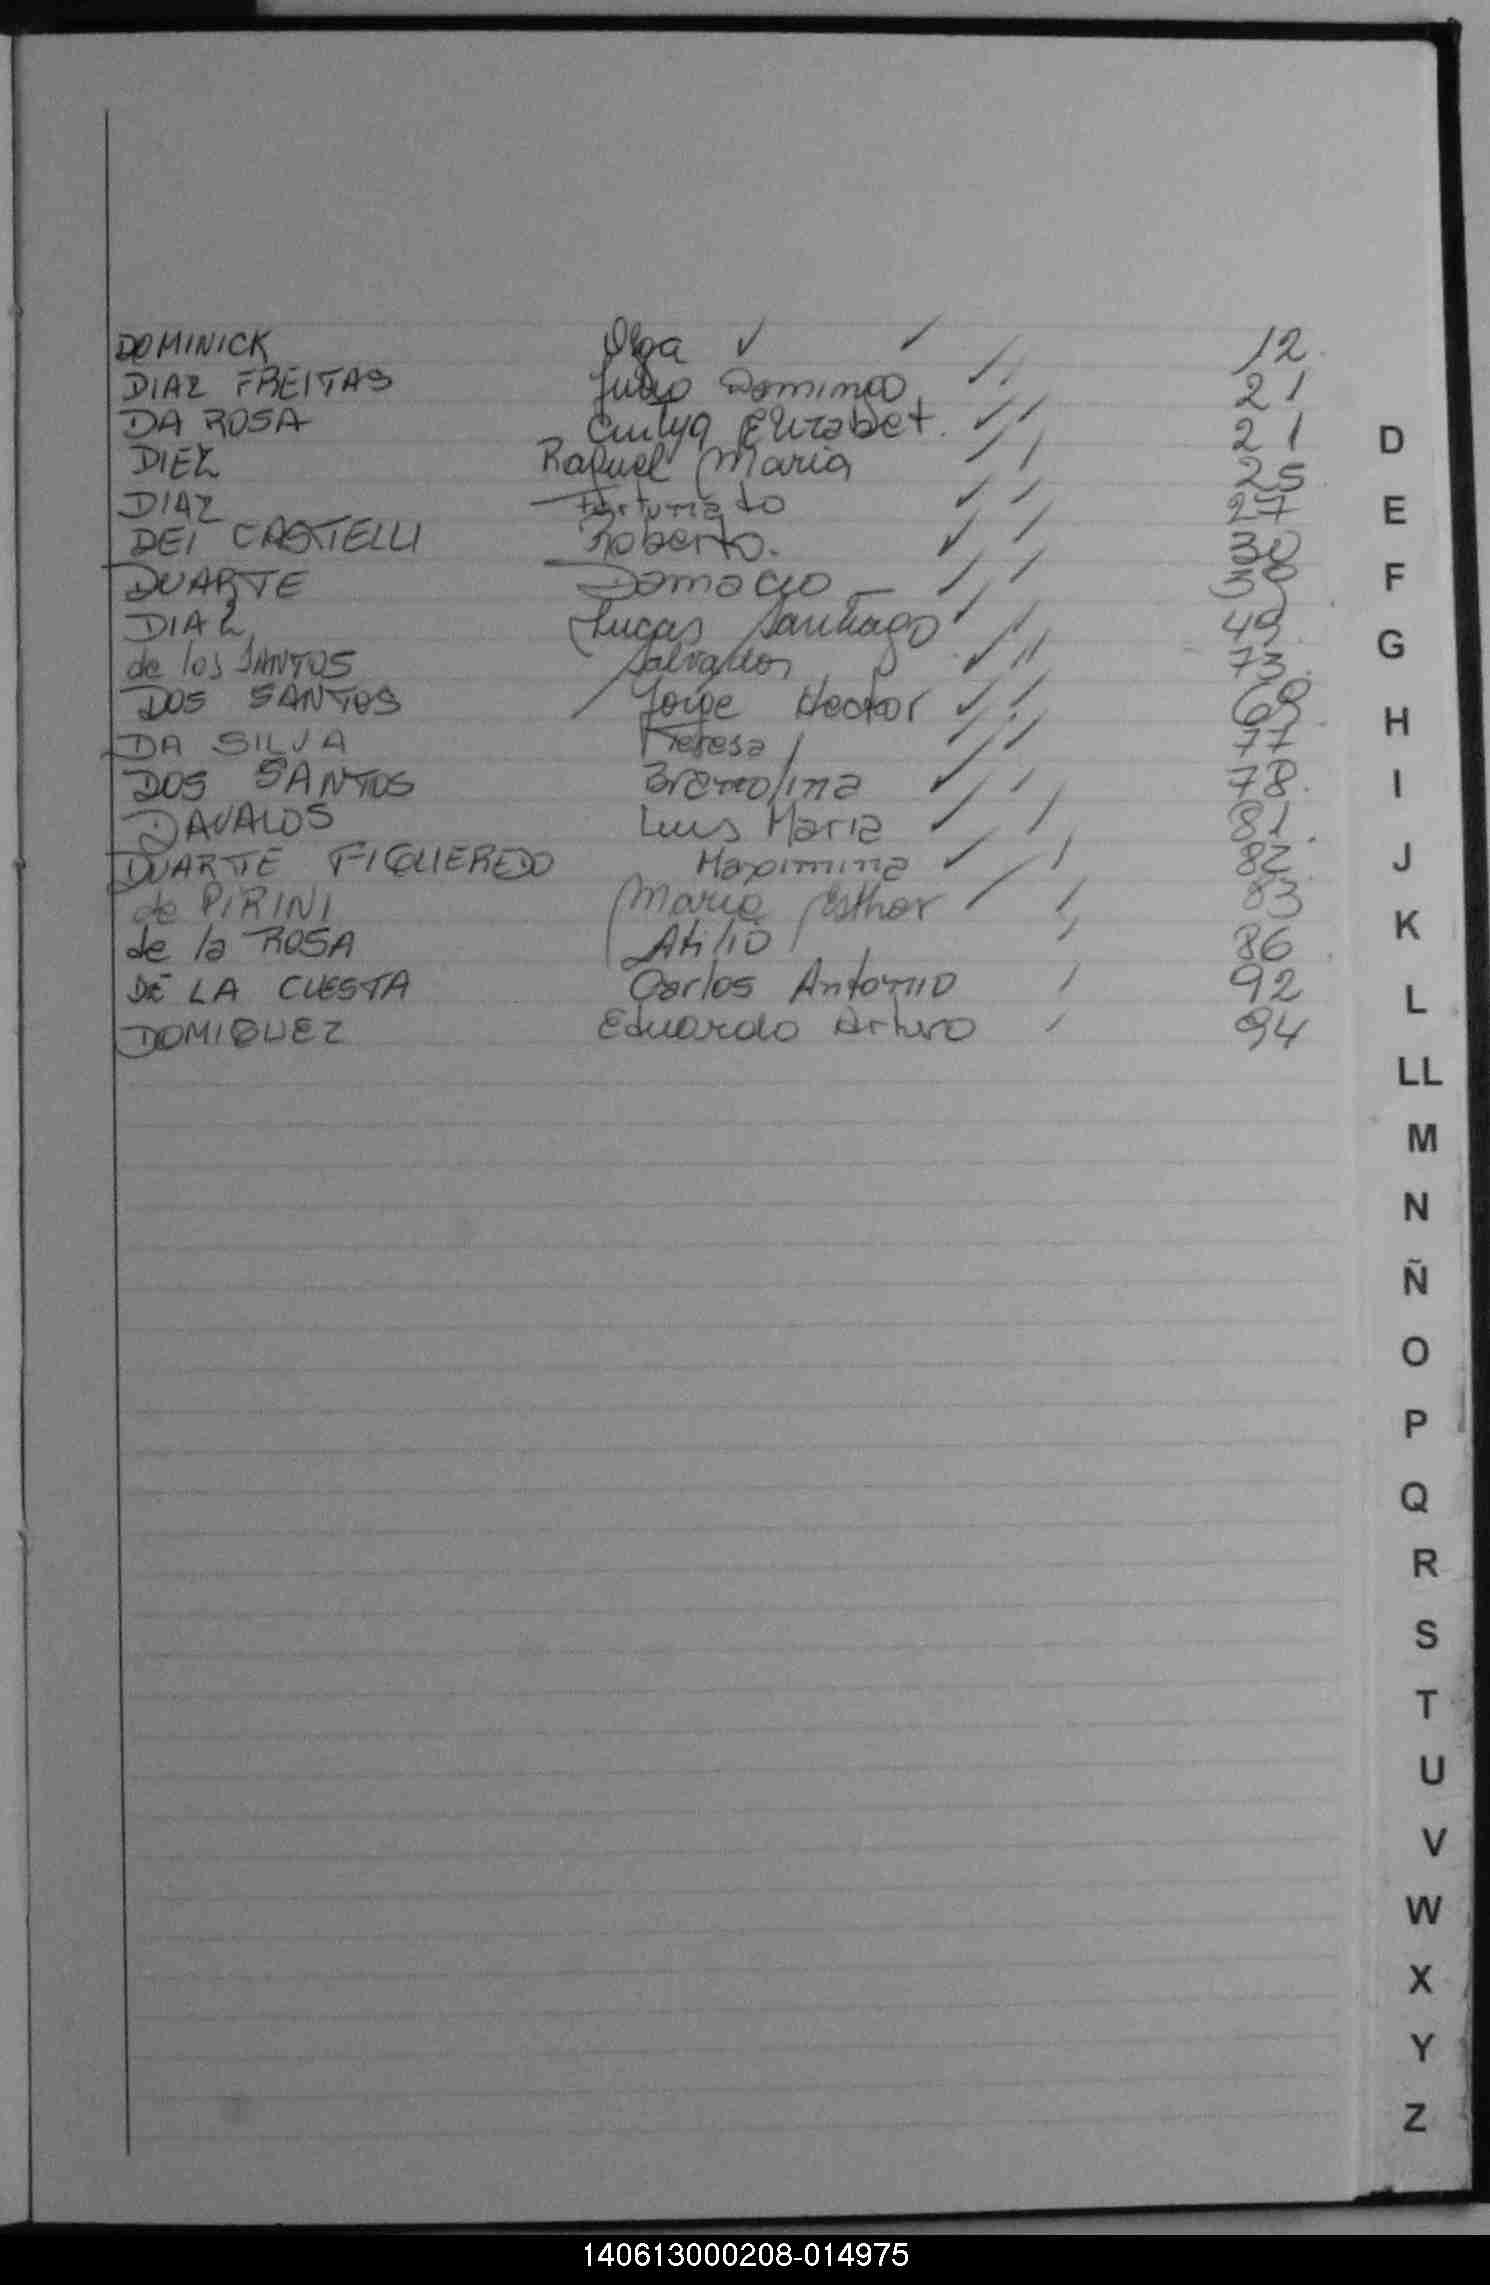 DOMINICK Olga ✓ ✓ 12
DIAZ FREITAS Julio Domingo 21
DA ROSA Elizabet. 21
DIEZ Raquel Maria 25
DIAZ Fortunato 27
DEI CASTELLI Roberto. 30
DUARTE Damacio
DIAZ Lucas Santiago 49
de los SANTOS Salvador 73
DOS SANTOS Jorge Hector 69
DA SILVA Teresa 77
DOS SANTOS 78
DAVALOS Luis Maria 81
DUARTE FIGUEREDO Maximina 82
de PIRINI Maria Esther 83
de la ROSA Atilio 86
DE LA CUESTA Carlos Antonio 92
DOMIQUEZ Eduardo Arturo 94
D
E
F
G
H
I
J
K
L
LL
M
N
Ñ
O
P
Q
R
S
T
U
V
W
X
Y
Z
140613000208-014975